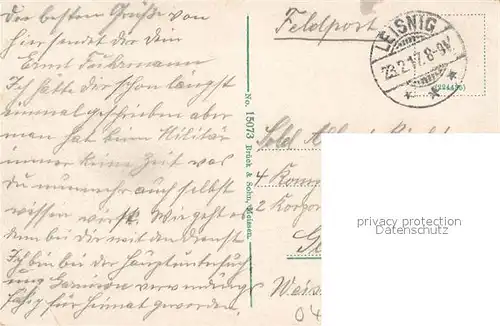 Den besten Grüße von
hier sendet dir dein
Ernst
Ich hätte dir schon längst
einmal geschrieben aber
man hat beim Militär
immer keine Zeit was
du nunmehr auch selbst
wissen wirst. Wie geht es
denn bei dir mit den Dienst
Ich bin bei der Hauptuntersuch
ung Garnison verwendungs
fähig für Heimat geworden.
No. 15073 Brück & Sohn, Meissen.
Feldpost
LEISNIG
23.2.17. 8-9V.
Sold
4 Komp
2 Korpor
PRIVACY PROTECTION
www.oldthing.de
04